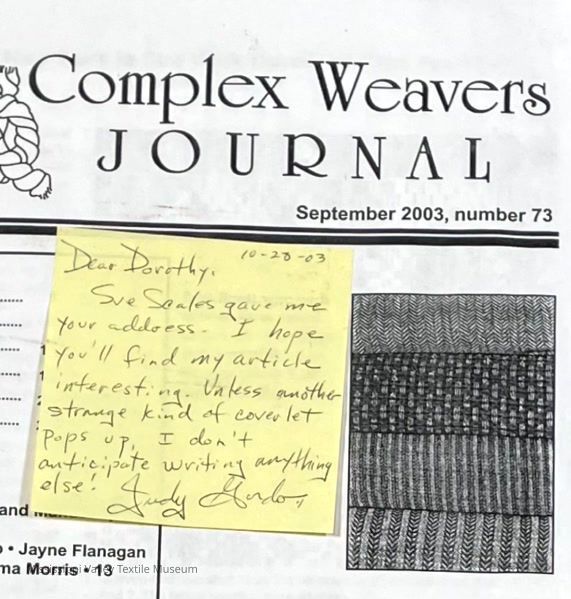 Complex Weavers
JOURNAL
September 2003, number 73
10-28-03
Dear Dorothy,
Sue Scales gave me
your address. I hope
you'll find my article
interesting. Unless another
strange kind of coverlet
pops up, I don't
anticipate writing anything
else! Judy Gordon
and
• Jayne Flanagan
ma Morris • 13
Mississippi Valley Textile Museum